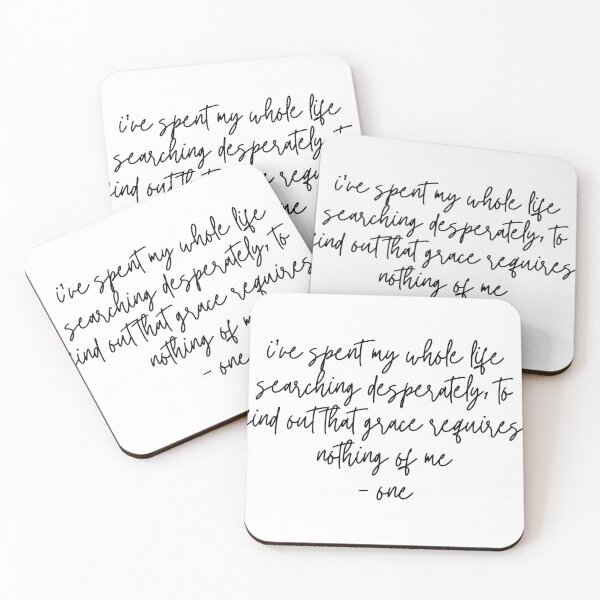 i've spent my whole life
searching desperately,
ind out
me
i've spent my whole life
searching desperately, to
ind out that grace requires
nothing of me
i've spent my whole life
searching desperately, to
ind out that grace requires
nothing of m
- one
i've spent my whole life
searching desperately, to
ind out that grace requires
nothing of me
- one